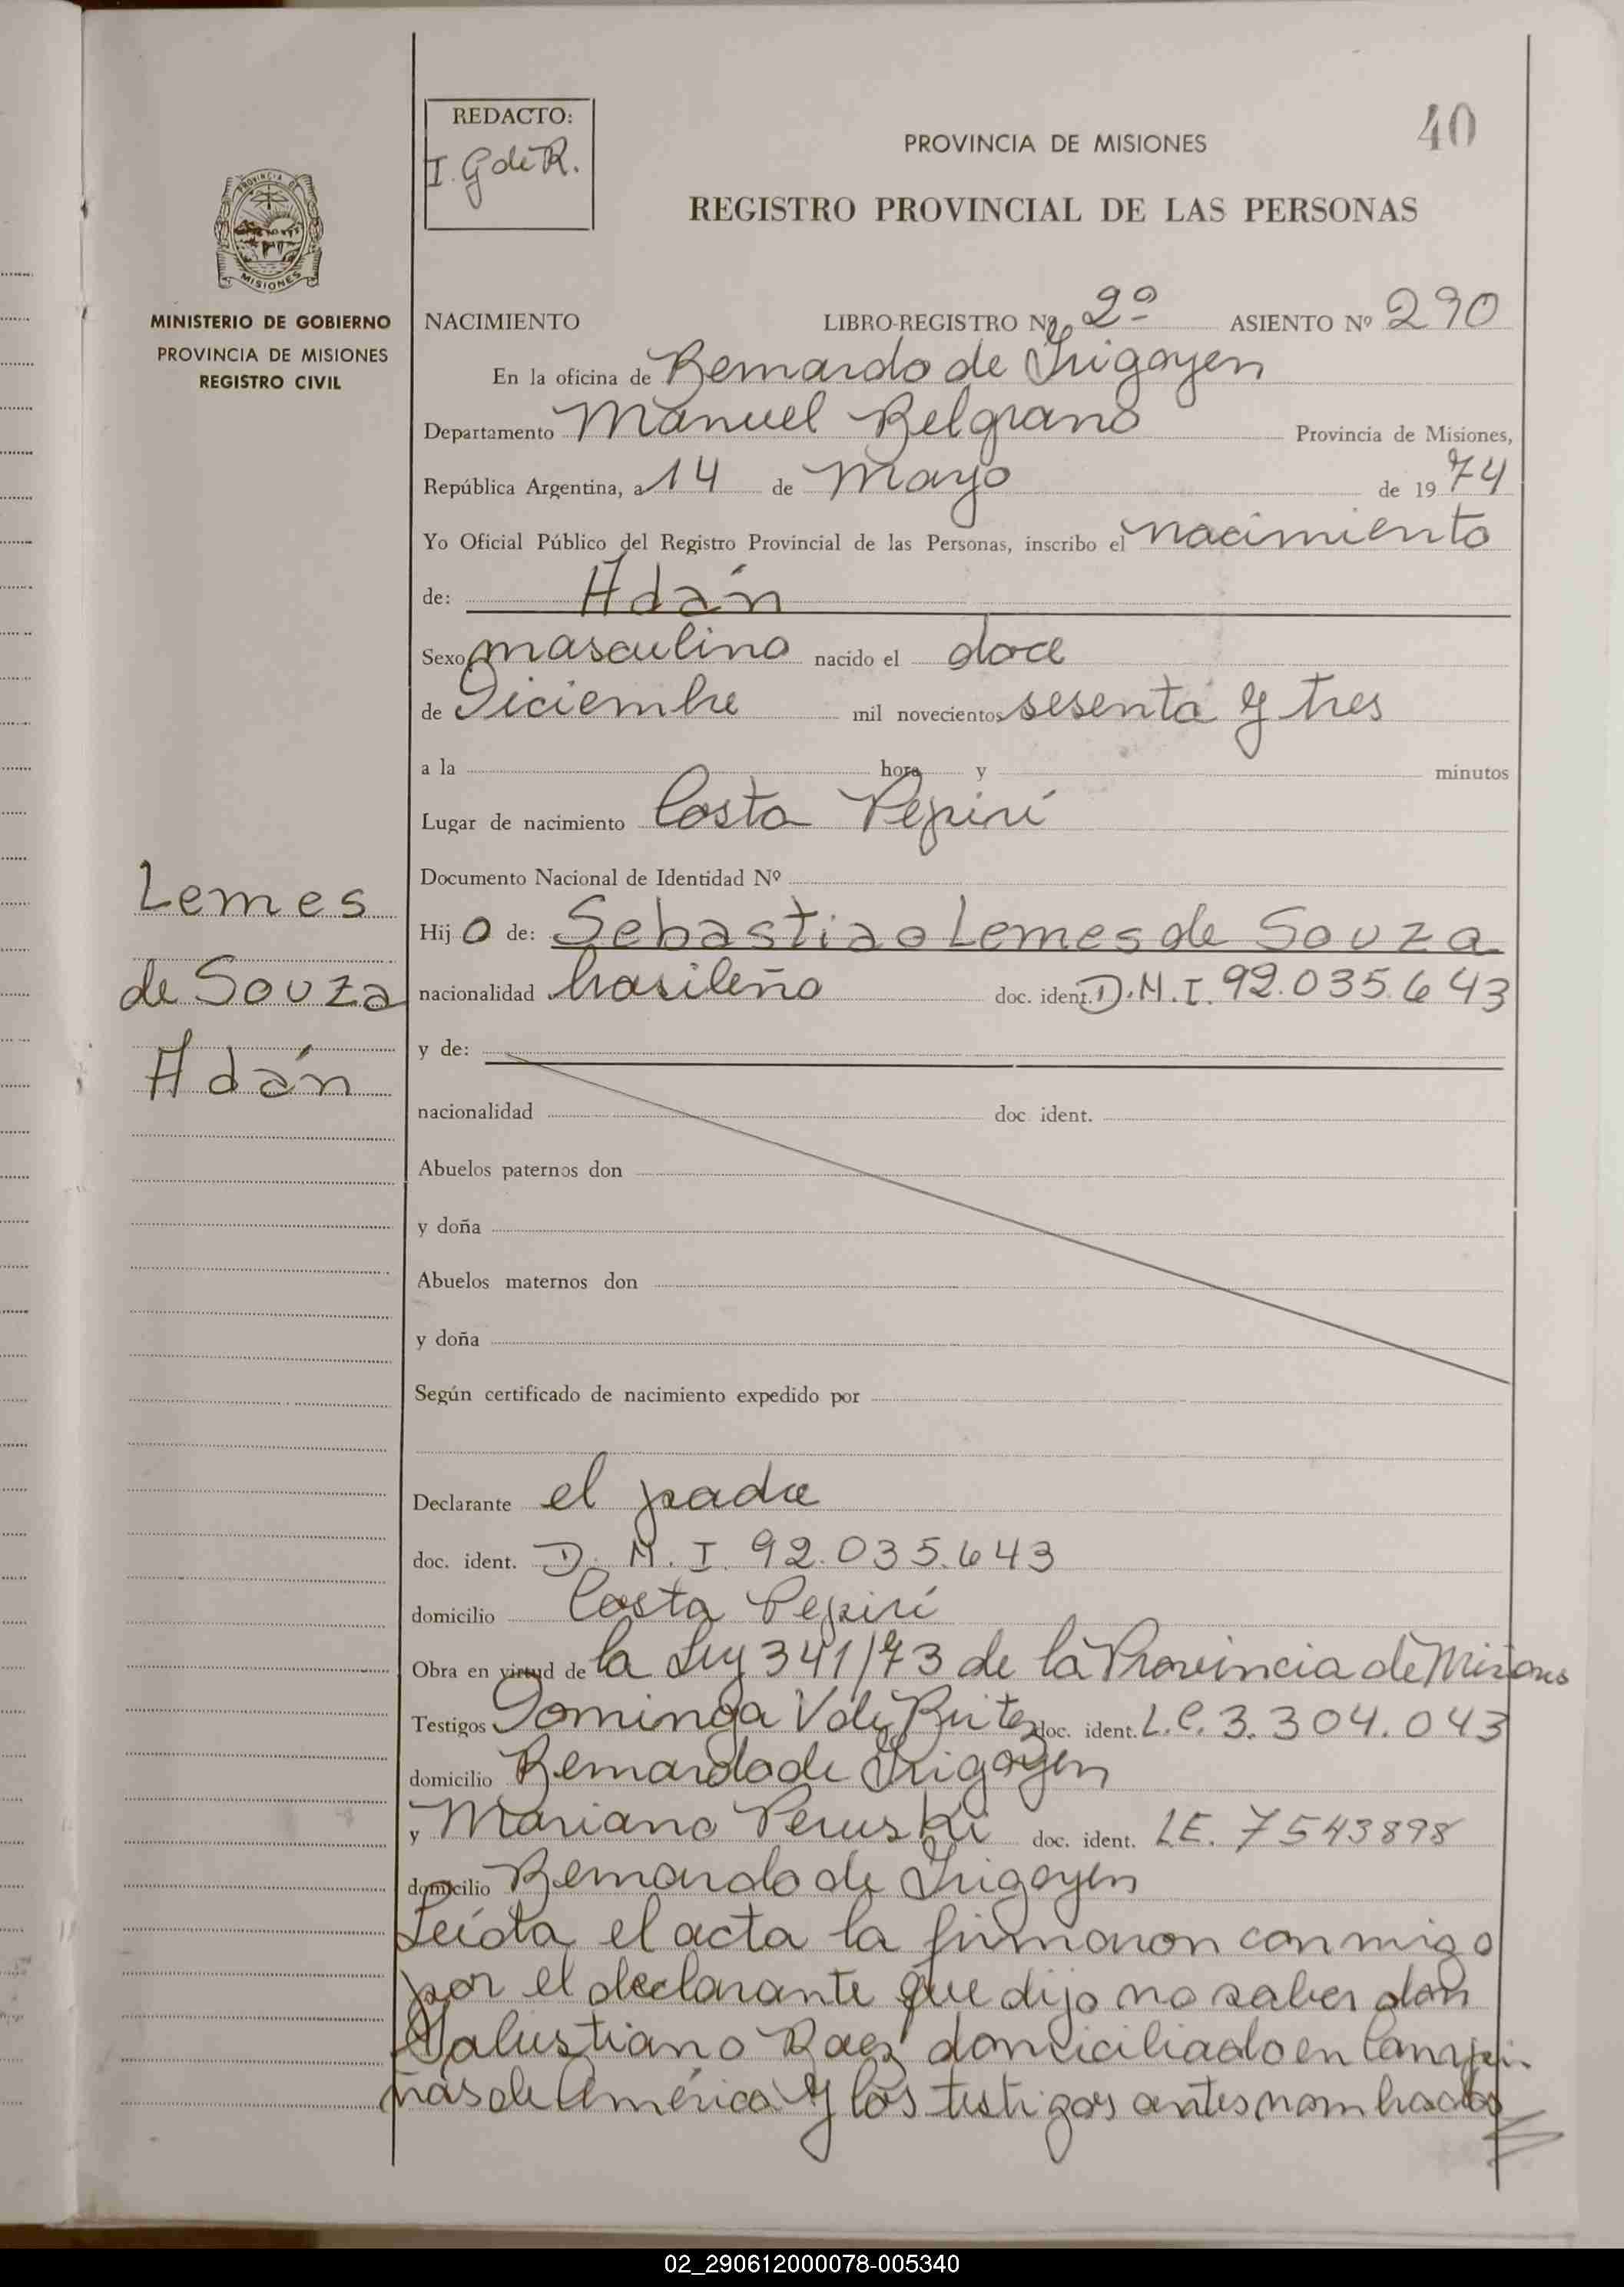 REDACTO:
I. G de R.
40
PROVINCIA DE MISIONES
REGISTRO PROVINCIAL DE LAS PERSONAS
PROVINCIA DE
MISIONES
MINISTERIO DE GOBIERNO
PROVINCIA DE MISIONES
REGISTRO CIVIL
NACIMIENTO LIBRO-REGISTRO Nº 2º ASIENTO Nº 290
En la oficina de Bernardo de Irigoyen
Departamento Manuel Belgrano Provincia de Misiones,
República Argentina, a 14 de Mayo de 1974
Yo Oficial Público del Registro Provincial de las Personas, inscribo el nacimiento
de: Adán
Sexo masculino nacido el doce
de Diciembre mil novecientos sesenta y tres
a la hora y minutos
Lugar de nacimiento Costa Pepirí
Documento Nacional de Identidad Nº
Lemes
de Souza
Adán
Hijo de: Sebastiao Lemes de Souza
nacionalidad brasileño doc. ident. D.N.I. 92.035.643
y de:
nacionalidad doc. ident.
Abuelos paternos don
y doña
Abuelos maternos don
y doña
Según certificado de nacimiento expedido por
Declarante el padre
doc. ident. D.N.I. 92.035.643
domicilio Costa Pepirí
Obra en virtud de la Ley 341/73 de la Provincia de Misiones
Testigos Dominga V de Britez doc. ident. L.C. 3.304.043
domicilio Bernardo de Irigoyen
y Mariano Peruski doc. ident. LE. 7543898
domicilio Bernardo de Irigoyen
Leída el acta la firmaron conmigo
por el declarante que dijo no saber don
Salustiano Baez domiciliado en Campi-
ñas de América y los testigos antes nombrados
02_290612000078-005340